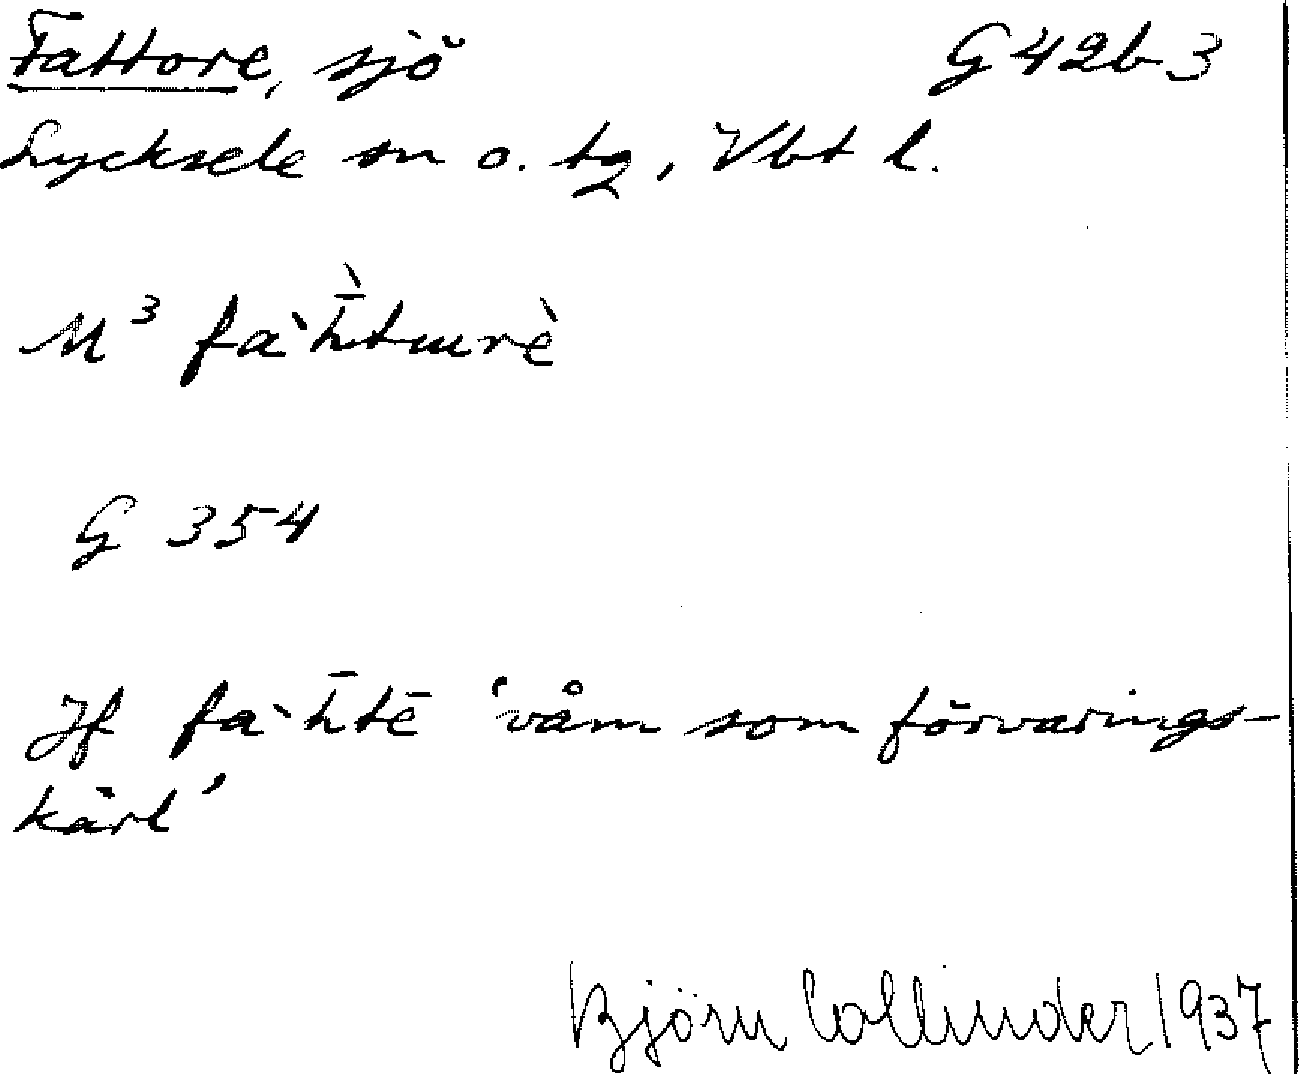 Fattore, sjö G 42b3
Lycksele sn o. tg, Vbt l.
M³ fàh̄̀tɯrè
G 354
Jf fàh̄tē 'våm som förvarings-
kärl'
Björn Collinder 1937